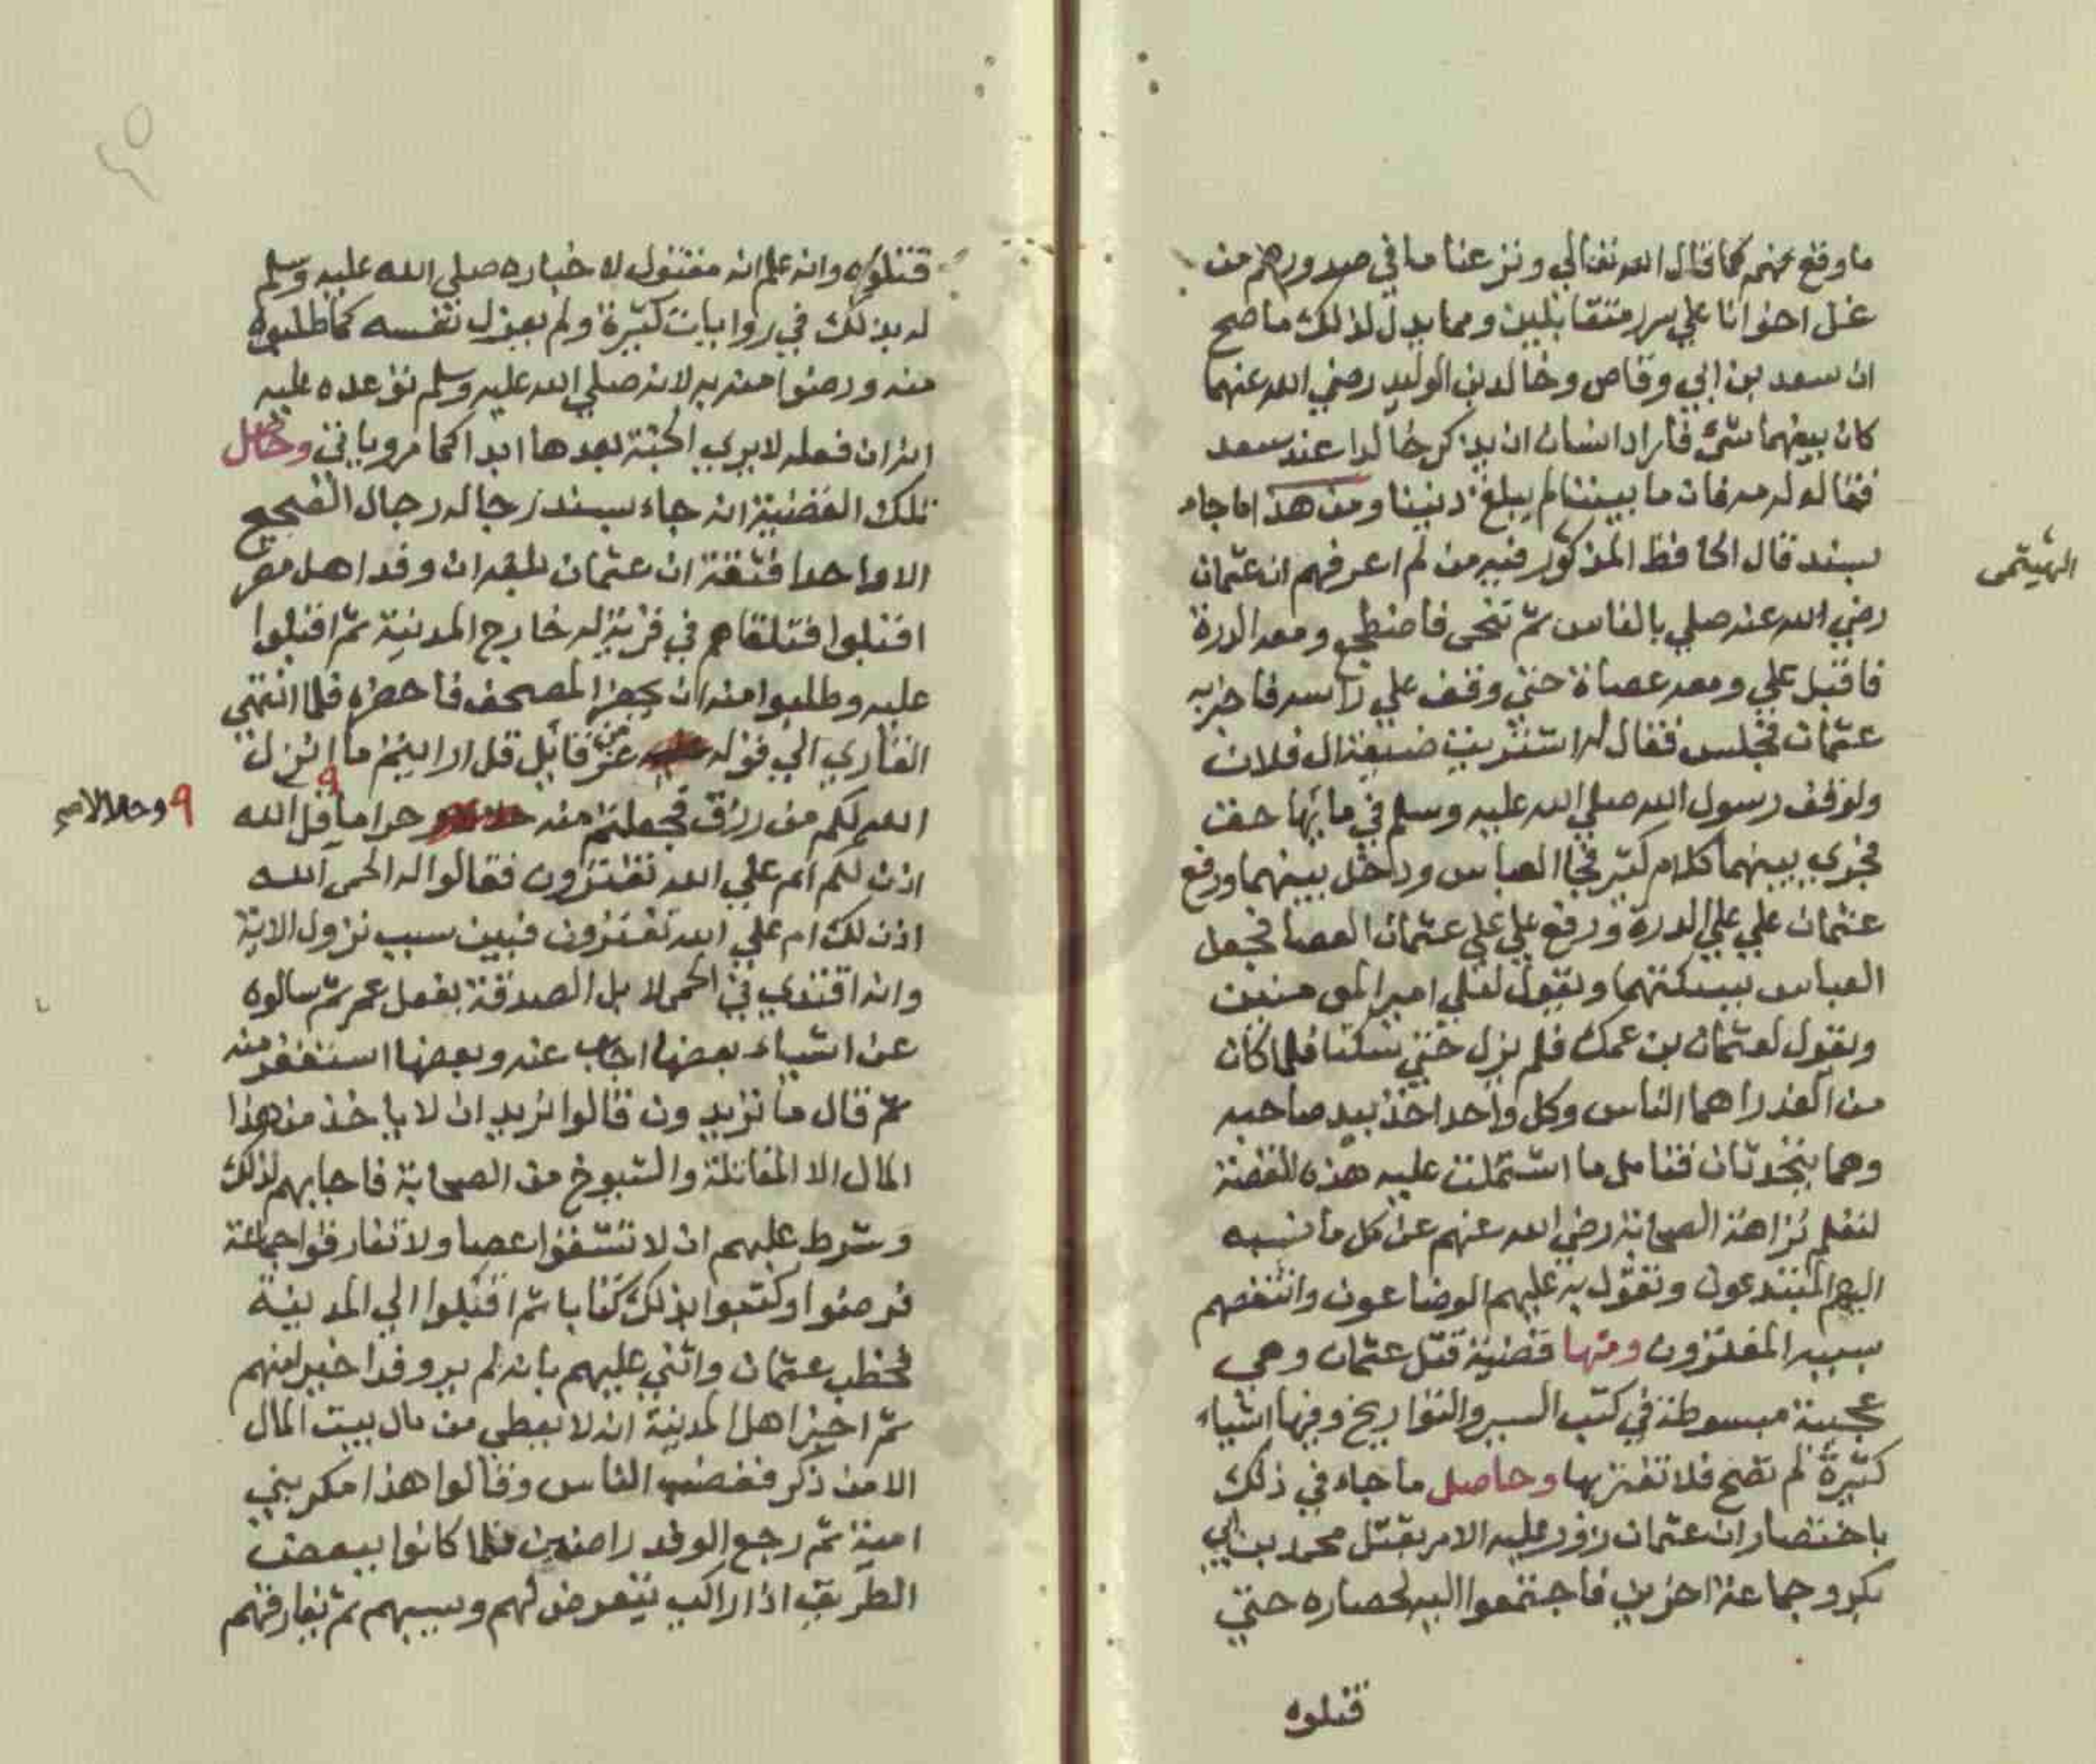 ما وقع بينهم كما قال الله تعالي ونزعنا ما في صدورهم من
غل اخوانا علي سرر متقابلين ومما يدل لذلك ما صح
ان سعد بن ابي وقاص وخالد بن الوليد رضي الله عنهما
كان بينهما شيء فاراد انسان ان يذكر خالدا عند سعد
فقال له مه فان ما بيننا لم يبلغ ديننا ومن هذا ما جاء
بسند قال الحافظ المذكور فيه من لم اعرفهم ان عثمان
الهيتمي
رضي الله عنه صلي بالناس ثم تنحي فاضطجع ومعه الدرة
فاقبل علي ومعه عصاة حتي وقف علي راسه فاخبر به
عثمان فجلس فقال له اشتريت ضيعة ال فلان
ولوقف رسول الله صلي الله عليه وسلم في مائها حق
فجري بينهما كلام كثير فجا العباس ودخل بينهما ورفع
عثمان علي علي الدرة ورفع علي علي عثمان العصا فجعل
العباس يسكنهما ويقول لعلي امير المومنين
ويقول لعثمان بن عمك فلم يزل حتي سكتا فلما كان
من الغد راهما الناس وكل واحد اخذ بيد صاحبه
وهما يتحدثان فتامل ما اشتملت عليه هذه القصة
لتعلم نزاهة الصحابة رضي الله عنهم عن كل ما نسبه
اليهم المبتدعون وتقول به عليهم الوضاعون وانتقصهم
بسببه المفترون ومنها قضية قتل عثمان وهي
عجيبة مبسوطة في كتب السير والتواريخ وفيها اشياء
كثيرة لم تصح فلا تغتر بها وحاصل ما جاء في ذلك
باختصار ان عثمان زور عليه الامر بقتل محمد بن ابي
بكر وجماعة اخرين فاجتمعوا اليه لحصاره حتي
قتلوه
قتلوه وانه علم انه مقتول لاخباره صلي الله عليه وسلم
له بذلك في روايات كثيرة ولم يعزل نفسه كما طلبوه
منه ورضوا منه به لانه صلي الله عليه وسلم توعده عليه
انه ان فعله لا يري الجنة بعدها ابدا كما مر وياتي وحاصل
تلك القضية انه جاء بسند رجاله رجال الصحيح
الا واحدا فثقة ان عثمان بلغه ان وفد اهل مصر
اقبلوا فتلقاهم في قرية له خارج المدينة ثم اقبلوا
عليه وطلبوا منه ان يحضر المصحف فاحضره فلما انتهي
القاري الي قوله عز من قائل قل ارايتم ما انزل
الله لكم من رزق فجعلتم منه حراما قل الله
٩ وحلالا صح
اذن لكم ام علي الله تفترون فقالوا له الحمي آلله
اذن لك ام علي الله تفترون فبين سبب نزول الاية
وانه اقتدي في الحمي لابل الصدقة بفعل عمر ثم سالوه
عن اشياء بعضها اجاب عنه وبعضها استغفر منه
ثم قال ما تريدون قالوا نريد ان لا ياخذ من هذا
المال الا المقاتلة والشيوخ من الصحابة فاجابهم لذلك
وشرط عليهم ان لا تشقوا عصا ولا تفارقوا جماعة
فرضوا وكتبوا بذلك كتابا ثم اقبلوا الي المدينة
فخطب عثمان واثني عليهم بانه لم ير وفدا خيرا منهم
ثم اخبر اهل المدينة انه لا يعطي من مال بيت المال
الا من ذكر فغضب الناس وقالوا هذا مكر بني
امية ثم رجع الوفد راضين فلما كانوا ببعض
الطريق اذا راكب يتعرض لهم ويسبهم ثم يفارقهم